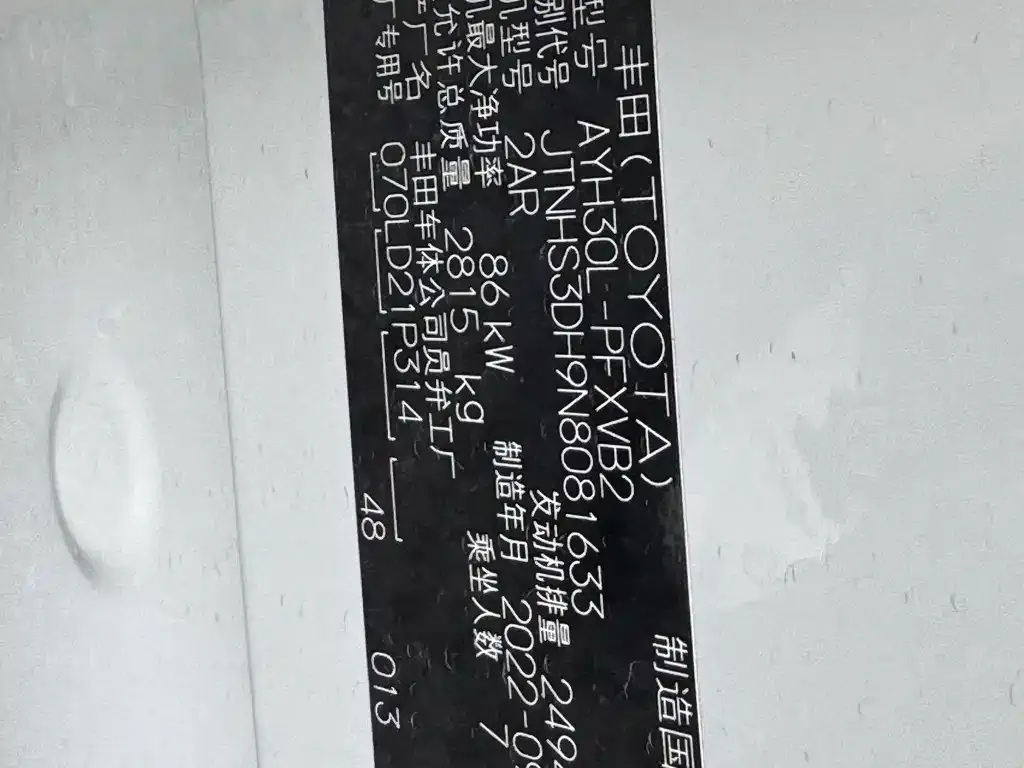 丰田(TOYOTA) 制造国
型号 AYH30L-PFXVB2
别代号 JTNHS3DH9N8081633
机型号 2AR 发动机排量 249
机最大净功率 86kW 制造年月 2022-09
允许总质量 2815 kg 乘坐人数 7
产厂名 丰田车体公司员弁工厂
厂专用号 070LD21P314
48 013